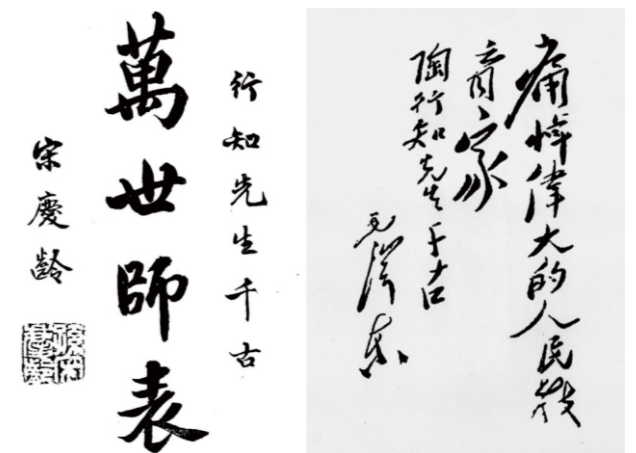 行知先生千古
萬世師表
宋慶齡
痛悼偉大的人民教
育家
陶行知先生千古
毛澤东